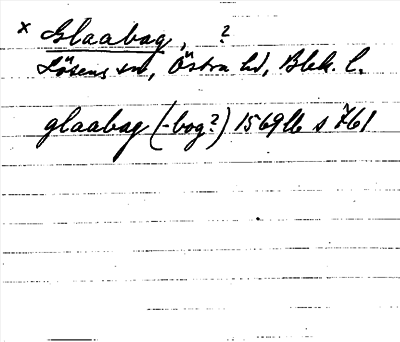 x Glaabag, ?
Lösens sn, Östra hd, Blek. l.
glaabag (-bog?) 1569 lb s 761